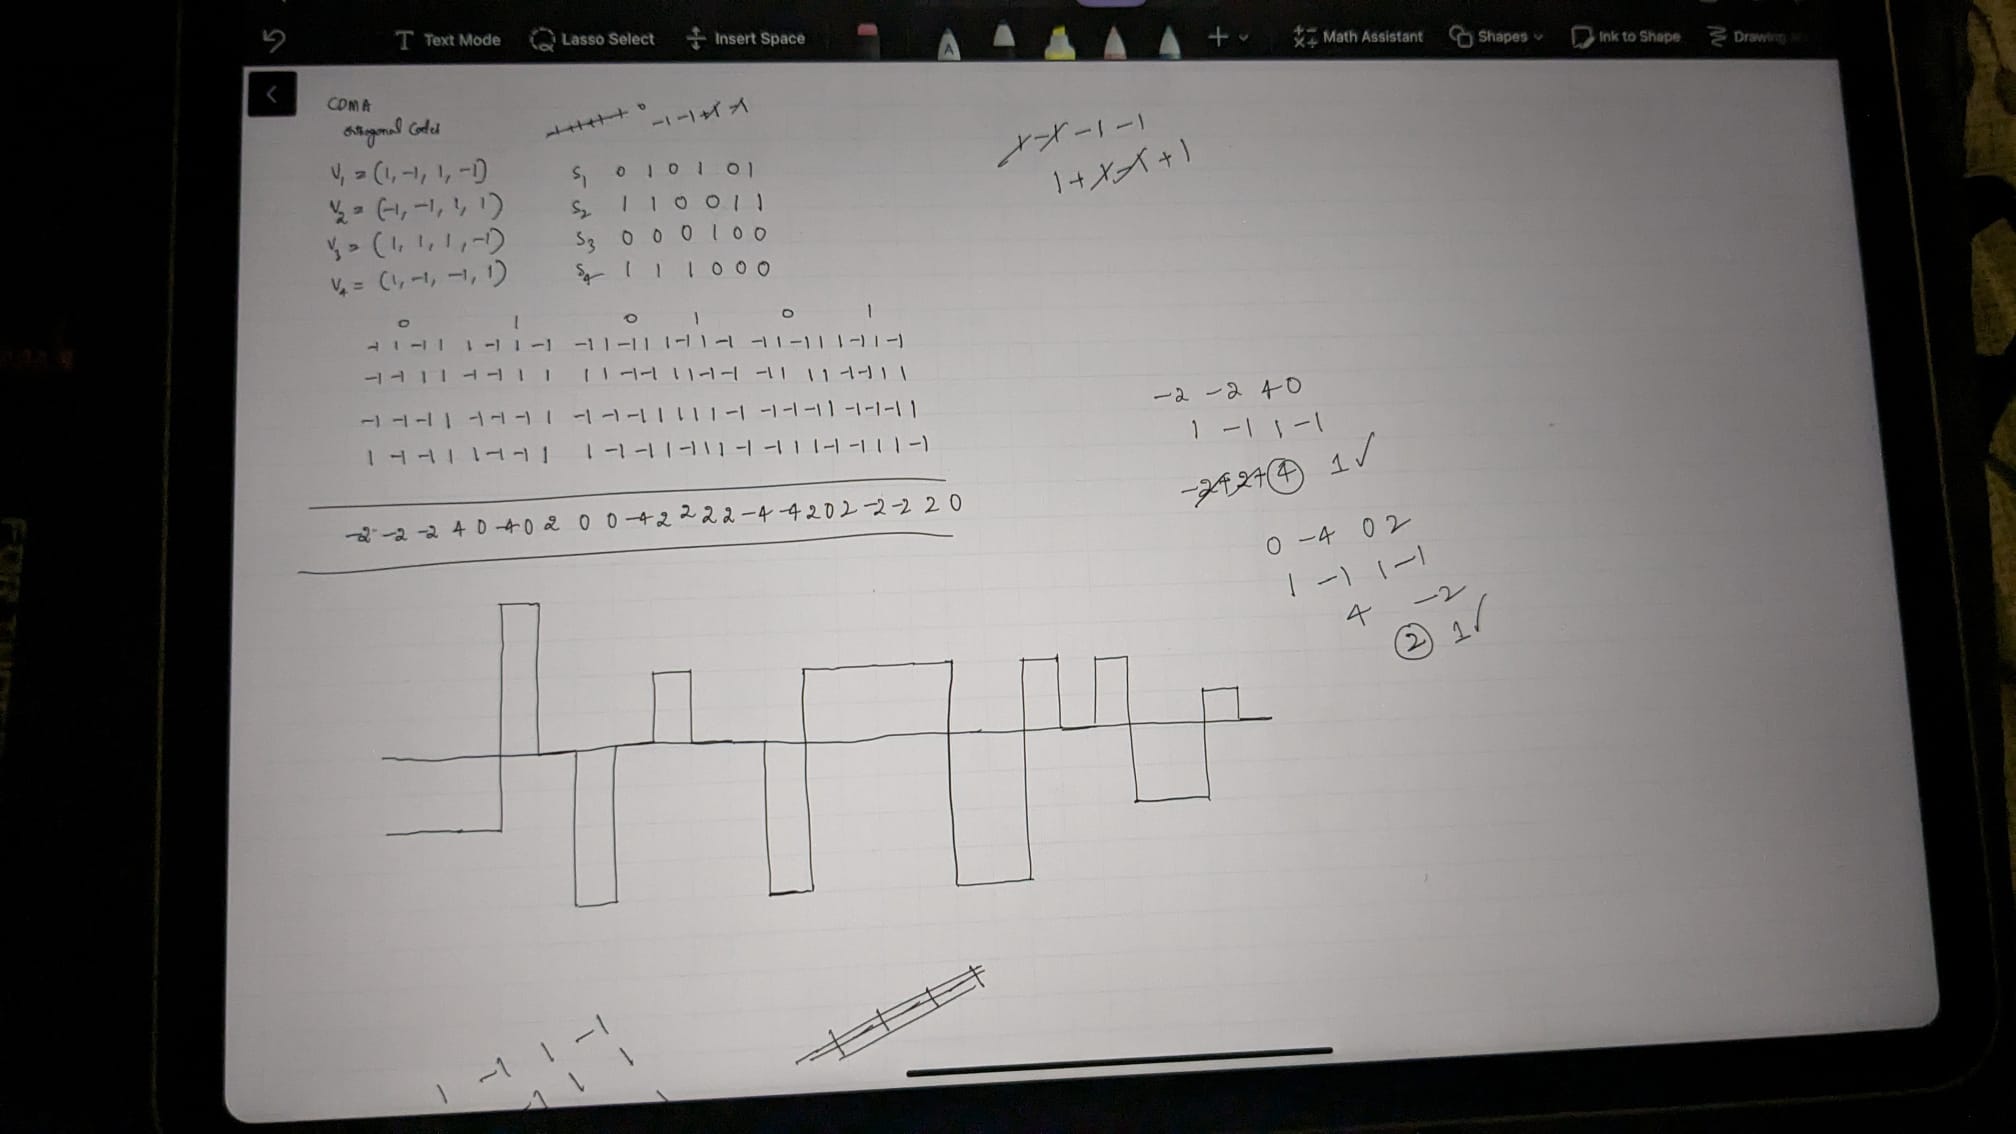 Text Mode Lasso Select Insert Space Math Assistant Shapes Ink to Shape
CDMA
Orthogonal Codes
V₁ = (1, -1, 1, -1)
V₂ = (-1, -1, 1, 1)
V₃ = (1, 1, 1, -1)
V₄ = (1, -1, -1, 1)
S₁ 0 1 0 1 0 1
S₂ 1 1 0 0 1 1
S₃ 0 0 0 1 0 0
S₄ 1 1 1 0 0 0
1 + 1 - 1 + 1
0 1 0 1 0 1
-1 1 -1 1 1 -1 1 -1 -1 1 -1 1 1 -1 1 -1 -1 1 -1 1 1 -1 1 -1
-1 -1 1 1 -1 -1 1 1 1 1 -1 -1 1 1 -1 -1 -1 1 1 1 -1 -1 1 1
-1 -1 -1 1 -1 -1 -1 1 -1 -1 -1 1 1 1 1 -1 -1 -1 -1 1 -1 -1 -1 1
1 -1 -1 1 1 -1 -1 1 1 -1 -1 1 -1 1 1 -1 -1 1 1 -1 -1 1 1 -1
-2 -2 -2 4 0 -4 0 2 0 0 -4 2 2 2 2 -4 -4 2 0 2 -2 -2 2 0
-2 -2 4 0
1 -1 1 -1
-2+2+4 1✓
0 -4 0 2
1 -1 1 -1
4 -2
2 1✓
1 -1 1 -1